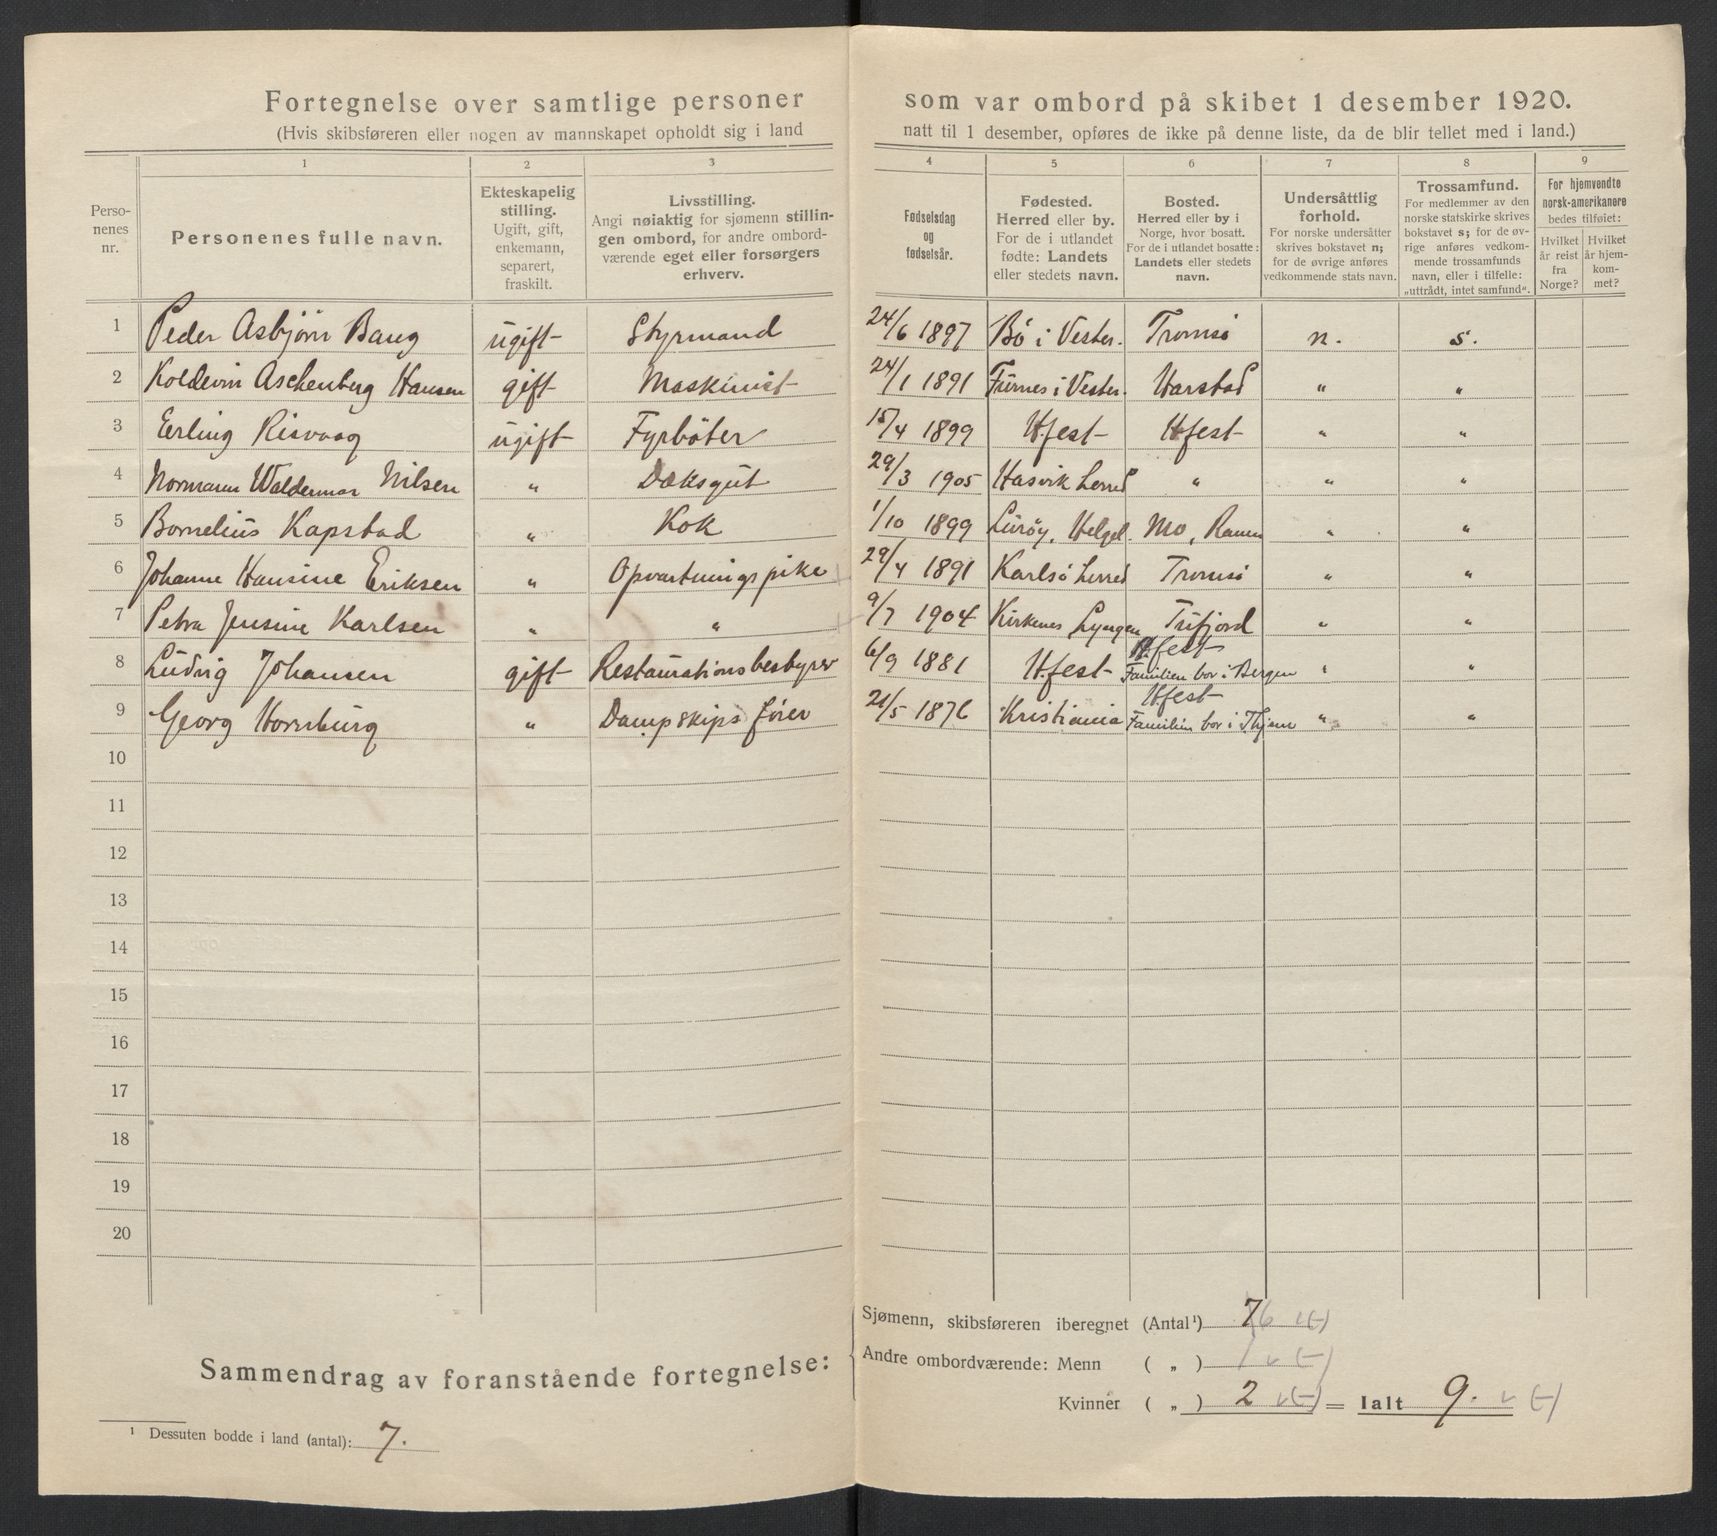 Fortegnelse over samtlige personer som var ombord på skibet 1 desember 1920.
(Hvis skibsføreren eller nogen av mannskapet opholdt sig i land natt til 1 desember, opføres de ikke på denne liste, da de blir tellet med i land.)
1 2 3 4 5 6 7 8 9
Perso-
nenes
nr.
Personenes fulle navn.
Ekteskapelig
stilling.
Ugift, gift,
enkemann,
separert,
fraskilt.
Livsstilling.
Angi nøiaktig for sjømenn stillin-
gen ombord, for andre ombord-
værende eget eller forsørgers
erhverv.
Fødselsdag
og
fødselsår.
Fødested.
Herred eller by.
For de i utlandet
fødte: Landets
eller stedets navn.
Bosted.
Herred eller by i
Norge, hvor bosatt.
For de i utlandet bosatte:
Landets eller stedets
navn.
Undersåttlig
forhold.
For norske undersåtter
skrives bokstavet n;
for de øvrige anføres
vedkommende stats navn.
Trossamfund.
For medlemmer av den
norske statskirke skrives
bokstavet s; for de øv-
rige anføres vedkom-
mende trossamfunds
navn, eller i tilfelle:
„uttrådt, intet samfund".
For hjemvendte
norsk-amerikanere
bedes tilføiet:
Hvilket
år reist
fra
Norge?
Hvilket
år hjem-
kom-
met?
1 Peder Asbjørn Baug ugift Styrmand 24/6 1897 Bø i Vester. Tromsø n. s.
2 Koldevin Aschenberg Hansen gift Maskinist 24/1 1891 i Vester. Harstad " "
3 Erling Risvaag ugift Fyrbøter 15/4 1899 H.fest H.fest " "
4 Normann Waldemar Nilsen " Dæksgut 29/3 1905 Hasvik herred " " "
5 Bornelius Kapstad " Kok 1/10 1899 Lurøy, Helgel. Mo, Ranen " "
6 Johanne Hansine Eriksen " Opvartningspike 29/4 1891 Karlsø herred Tromsø " "
7 Petra Jensine Karlsen " " 9/7 1904 Kirkenes Lyngen Tufjord " "
8 Ludvig Johansen gift Restaurationsbestyrer 6/9 1881 H.fest H.fest
Familien bor i Bergen " "
9 Georg Hornburg " Dampskipsfører 21/5 1876 Kristiania H.fest
Familien bor i Thjem " "
10
11
12
13
14
15
16
17
18
19
20
Sammendrag av foranstående fortegnelse:
Sjømenn, skibsføreren iberegnet (Antal¹) 7 6 v(-)
Andre ombordværende: Menn ( „ ) 1 v(-)
Kvinner ( „ ) 2 v(-) = Ialt 9. v(-)
¹ Dessuten bodde i land (antal): 7.